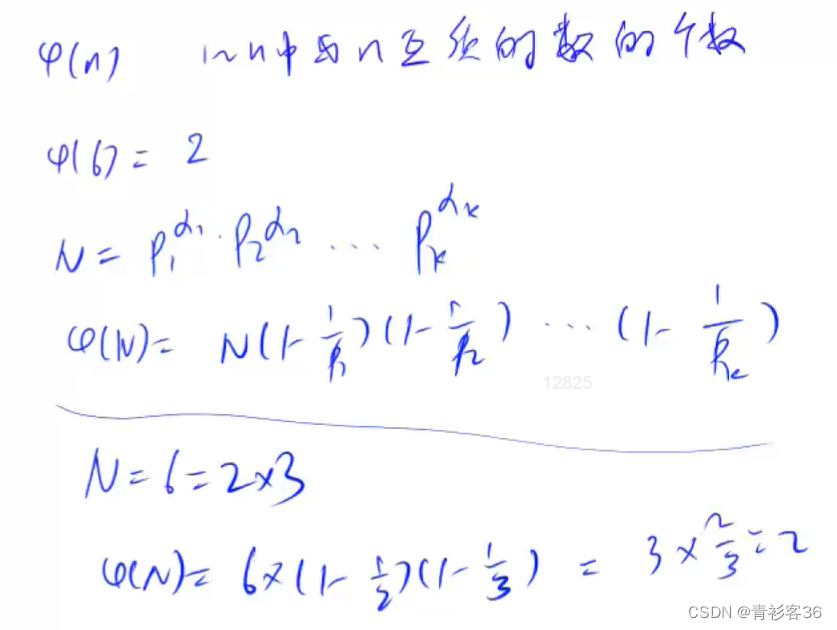 φ(n) 1~n中与n互质的数的个数
φ(6) = 2
N = P₁^α₁ · P₂^α₂ ... Pₖ^αₖ
φ(N) = N(1-1/P₁)(1-1/P₂) ... (1-1/Pₖ)
12825
N=6=2×3
φ(N)= 6×(1-1/2)(1-1/3) = 3×2/3=2
CSDN @青衫客36